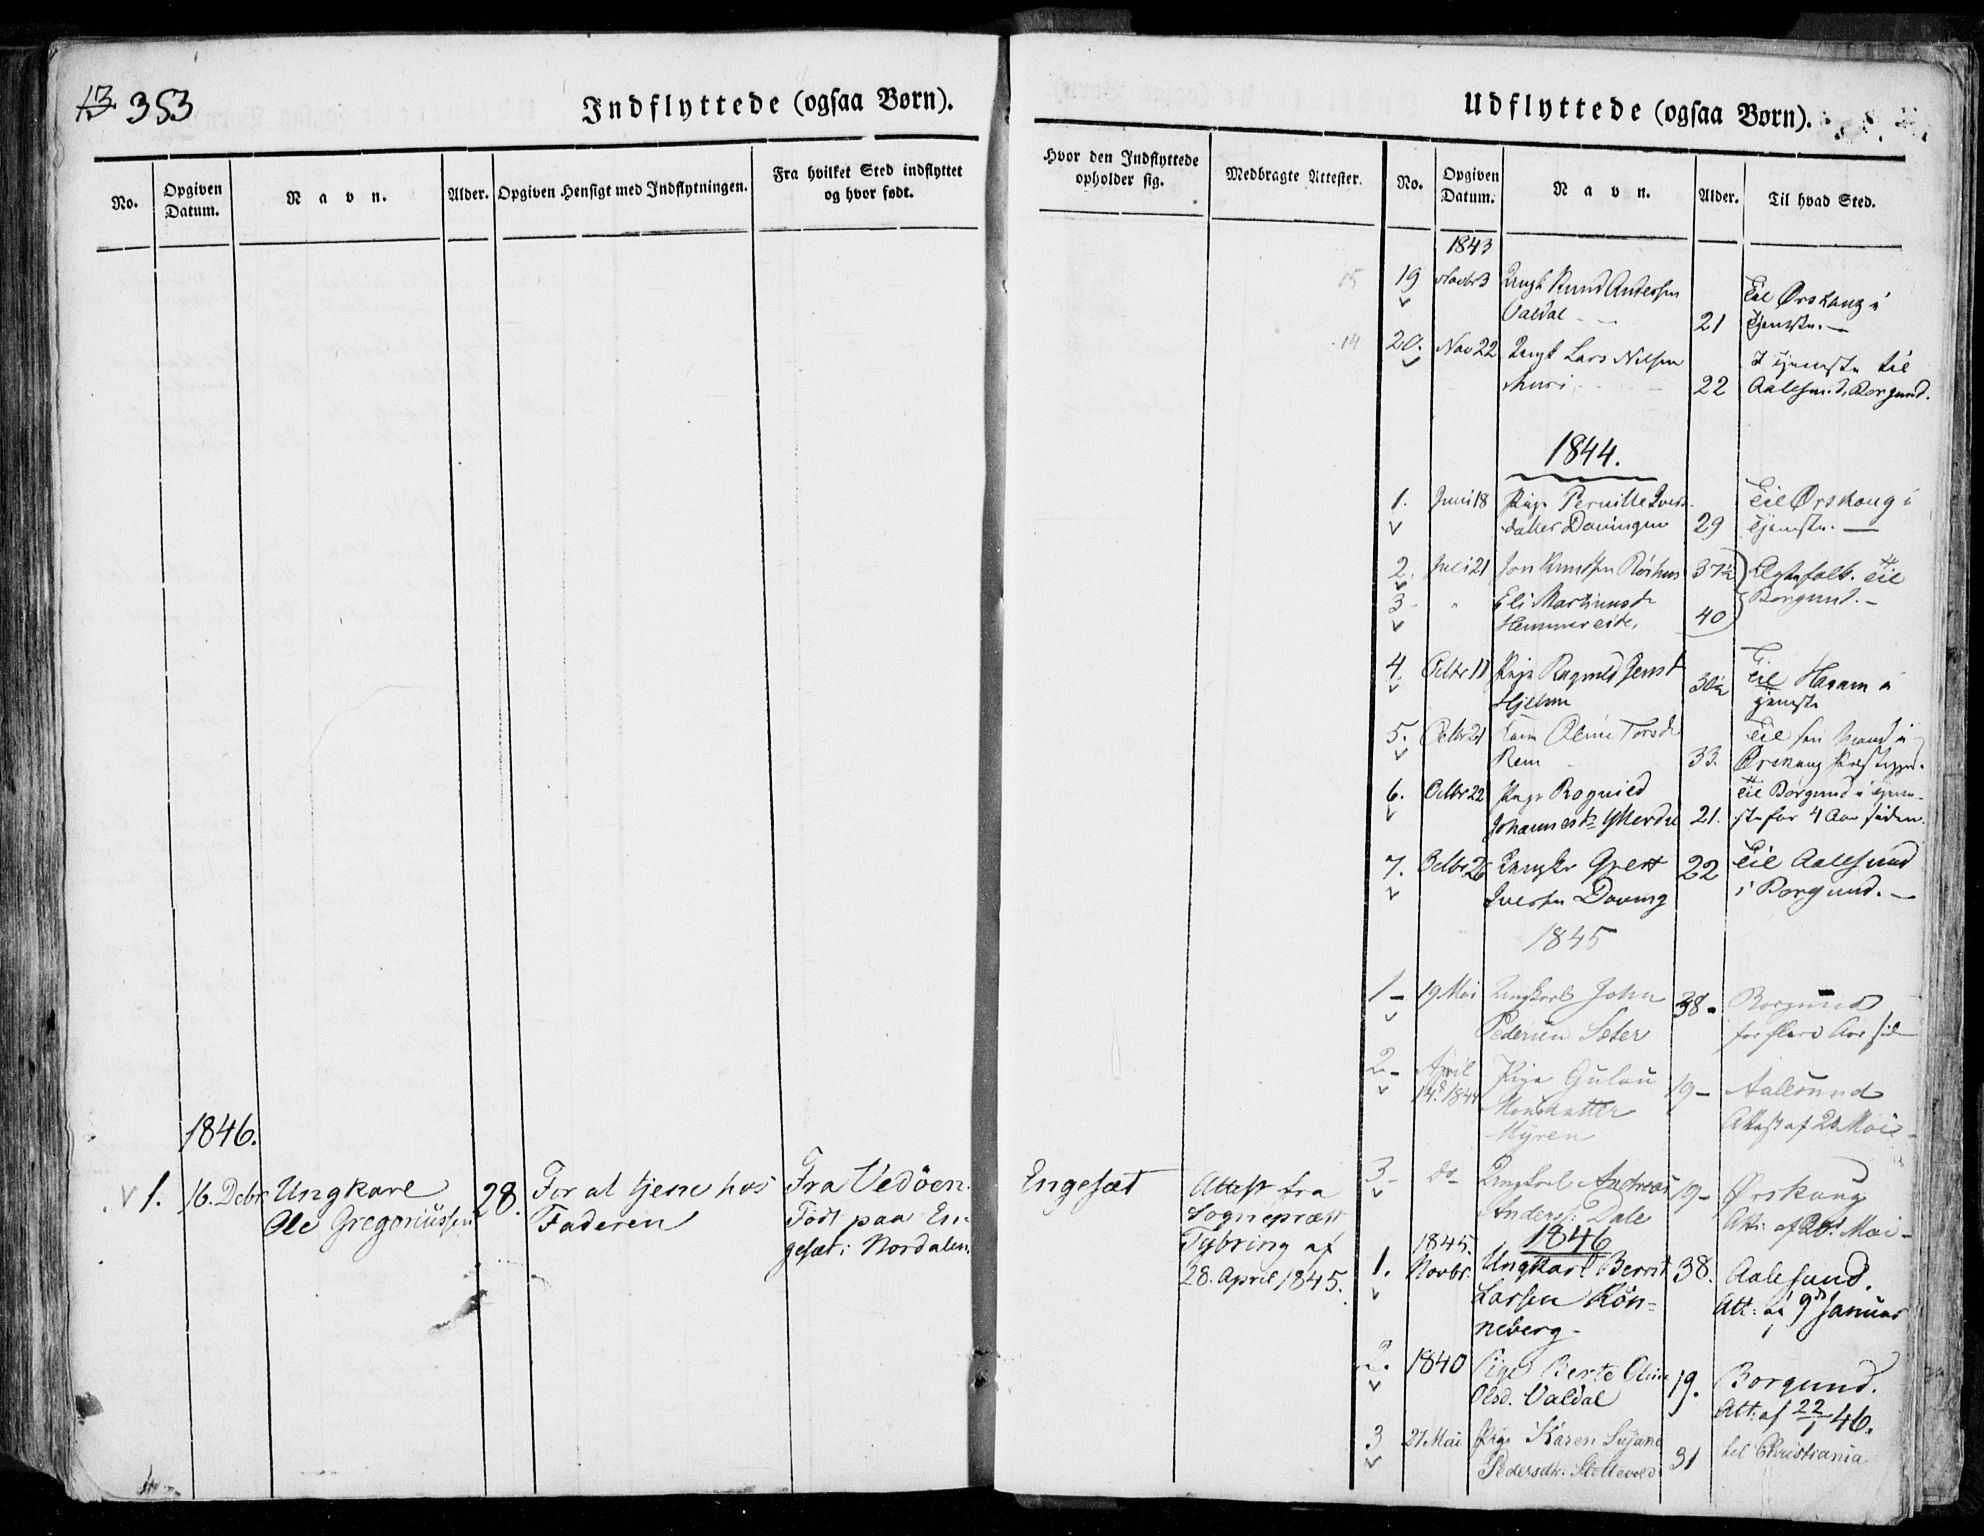 13 353
Indflyttede (ogsaa Børn).
No.
Opgiven
Datum.
Navn.
Alder.
Opgiven Hensigt med Indflytningen.
Fra hvilket Sted indflyttet
og hvor født.
1846.
v 1.
16. Debr
Ungkarl
Ole Gregoriussen
28.
For at tjene hos
Faderen
Fra Vedöen
Født paa En-
gesæt i Nordalen.
Udflyttede (ogsaa Børn).
Hvor den Indflyttede
opholder sig.
Medbragte Attester.
No.
Opgiven
Datum.
Navn.
Alder.
Til hvad Sted.
Engesæt
Attest fra
Sognepræst
Tybring af
28. April 1845.
1843
15
19
v
Novbr 3
Ungk Knud Andersen
Valdal
21
Til Ørskoug i
Tjeneste.
14
20.
v
Nov 22
Ungk Lars Nilsen
Muri
22
I Tjeneste til
Aalesund, Borgund.
1844.
1.
v
Juni 18
Pige Pernille Ivers
datter Davingen
29
Til Ørskoug i
Tjeneste.
2.
v
Juli 21
Jon Knudsen Rörhus
37½
Ægtefolk. til
Borgund.
3
v
"
Eli Martinusdr
Hemmereide.
40
4
v
Octbr 11
Pige Ragnild Jensd
Hjelme
30½
Til Haram i
tjeneste
5.
v
Octbr 21
Oline Torsdr
Rem
33.
Til sin Mand i
Ørskoug
6.
v
Octbr 22
Pige Rognild
Johannesdr Ytterdal
21.
til Borgund i Tjene-
ste for 4 Aar siden.
7.
v
Octbr 26
Ungkr Gjert
Iversen Daving
22
Til Aalesund
i Borgund.
1845
1
v
19 Mai
Ungkarl John
Pedersen Sæter
38.
Borgund
for flere Aar sid
2
v
April
14d 1844
Pige Gulau
Monsdatter
Myren
19
Aalesund
Attest af 20 Mai
3
v
do
Ungkarl Andreas
Anders: Dale
19
Ørskoug
Att: af 20d Mai
1846
1.
v
1845.
Novbr.
Ungkarl Berrit
Larsen Rön-
neberg
38.
Aalesund.
Att: af 9d Januar
2.
v
1840
Pige Berte Oline
Olsd. Valdal
19.
Borgund.
Att: af 22/1 46.
3
v
27 Mai
Pige Karen Sujane
Pedersdtr.
31
til Christiania